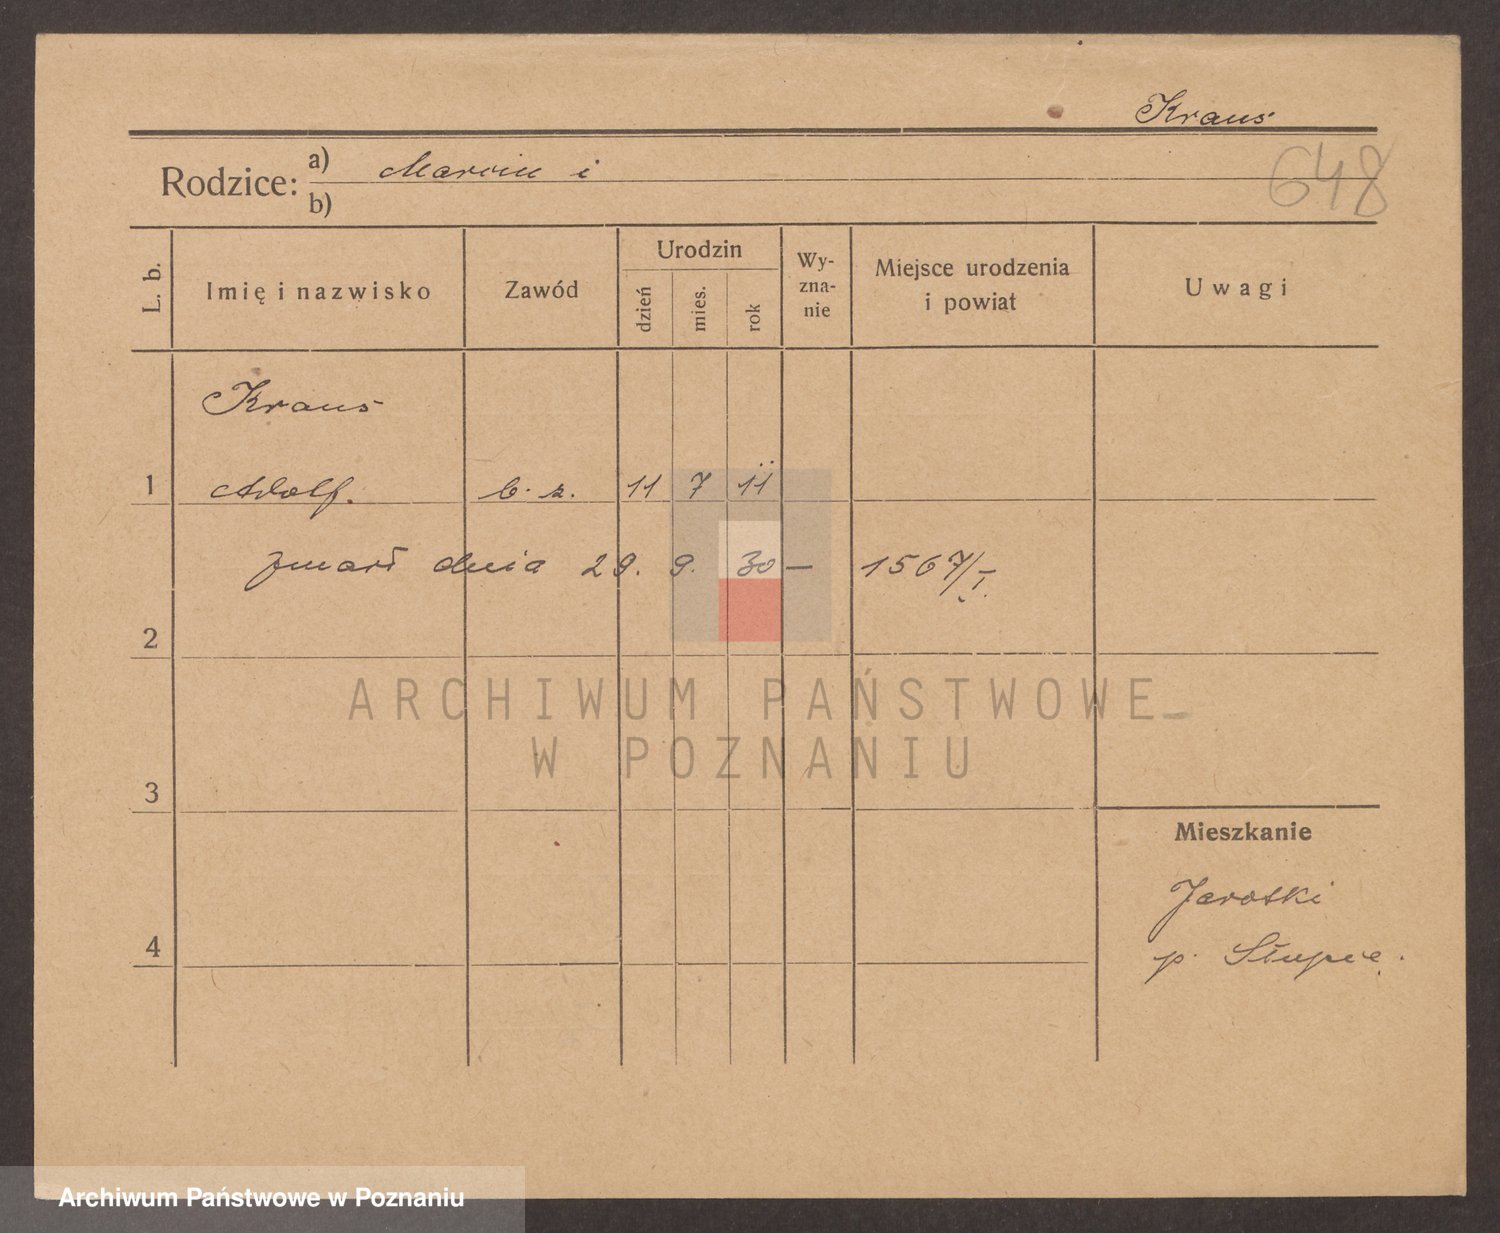 Kraus
648
Rodzice: a) Marcin i
b)
L. b. Imię i nazwisko Zawód Urodzin dzień mies. rok Wy-zna-nie Miejsce urodzenia i powiat Uwagi
Kraus
1 Adolf. b. z. 11 7 11
zmarł dnia 29. 9. 30 — 1567/I.
2
ARCHIWUM PAŃSTWOWE
W POZNANIU
3
Mieszkanie
Jarotki
4
p. Słupce.
Archiwum Państwowe w Poznaniu